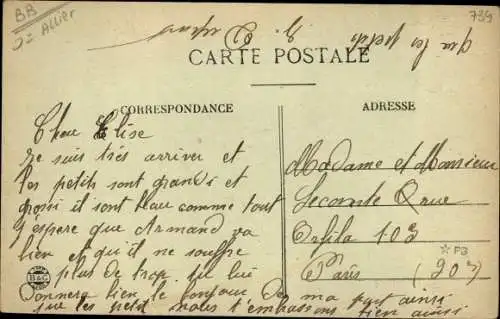 BB
D= Allier
739
que les petits
CARTE POSTALE
CORRESPONDANCE
ADRESSE
Cheu Elise
Je suis très arriver et
les petits sont grands et
grossi il sont beau comme tout
j'espère que Armand va
bien et qu'il ne souffre
plus de trop tu lui
Donnera bien le bonjour de ma part ainsi
que les petits nous t'embrassons bien ainsi
Madame et Monsieur
Lecomte Q rue
Orfila 103
☆ P3
Paris (20e)
B&G